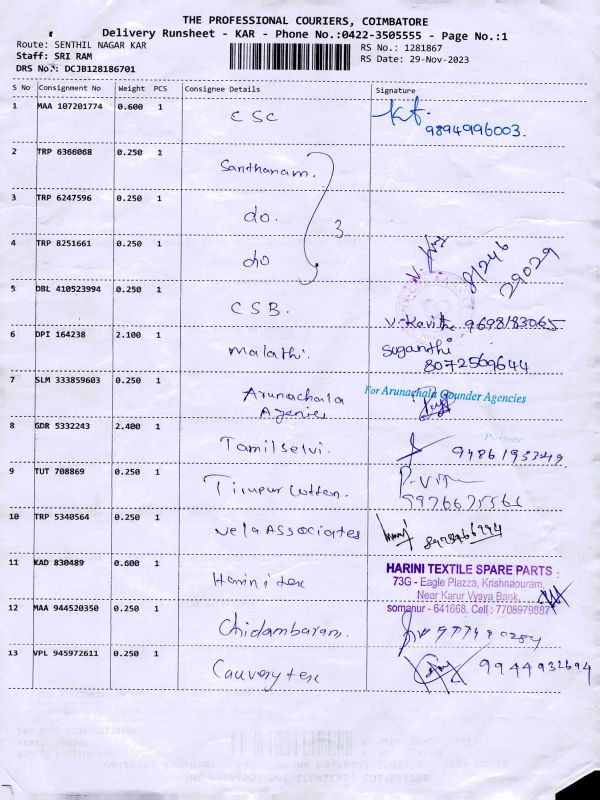 THE PROFESSIONAL COURIERS, COIMBATORE
Delivery Runsheet - KAR - Phone No.:0422-3505555 - Page No.:1
Route: SENTHIL NAGAR KAR
RS No.: 1281867
Staff: SRI RAM
RS Date: 29-Nov-2023
DRS No.: DCJB128186701
S No Consignment No Weight PCS Consignee Details Signature
1 MAA 107201774 0.600 1 CSC
9894996003.
2 TRP 6366068 0.250 1 Santhanam.
3 TRP 6247596 0.250 1 do. 3
4 TRP 8251661 0.250 1 do
81246
29029
5 DBL 410523994 0.250 1 CSB. V. Kavitha 9698183065
6 DPI 164238 2.100 1 Malathi. Suganthi
8072569644
7 SLM 333859603 0.250 1 Arunachala
Agencies
For Arunachala Gounder Agencies
Partner
8 GDR 5332243 2.400 1 Tamilselvi. 9486193349
9 TUT 708869 0.250 1 Tirupur Cotton.
10 TRP 5340564 0.250 1 Vela Associates
11 KAD 830489 0.600 1 Harini tex
HARINI TEXTILE SPARE PARTS
73G - Eagle Plazza, Krishnapuram,
Near Karur Vysya Bank,
somanur - 641668. Cell : 7708979887
12 MAA 944520350 0.250 1 Chidambaram.
13 VPL 945972611 0.250 1 Cauvery tex 9944932694